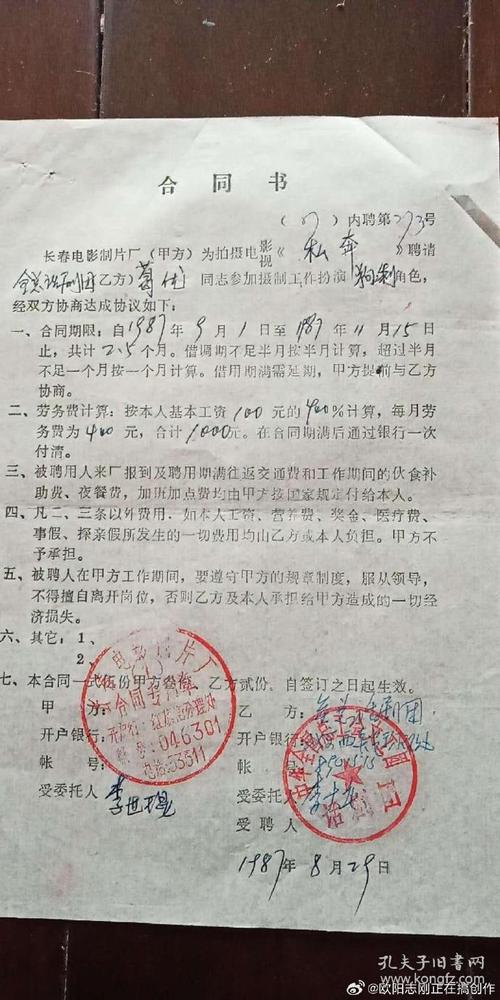 合同书
(87)内聘第273号
长春电影制片厂(甲方)为拍摄电影视《私奔》聘请
全总话剧团(乙方)葛优同志参加摄制工作扮演狗剩角色,
经双方协商达成协议如下:
一、合同期限:自1987年9月1日至1987年11月15日
止,共计2.5个月。借调期不足半月按半月计算,超过半月
不足一个月按一个月计算。借用期满需延期,甲方提前与乙方
协商。
二、劳务费计算:按本人基本工资100元的400%计算,每月劳
务费为400元,合计1000元。在合同期满后通过银行一次
付清。
三、被聘用人来厂报到及聘用期满往返交通费和工作期间的伙食补
助费、夜餐费,加班加点费均由甲方按国家规定付给本人。
四、凡二、三条以外费用,如本人工资、营养费、奖金、医疗费、
事假、探亲假所发生的一切费用均由乙方或本人负担。甲方不
予承担。
五、被聘人在甲方工作期间,要遵守甲方的规章制度,服从领导,
不得擅自离开岗位,否则乙方及本人承担给甲方造成的一切经
济损失。
六、其它:1、
2、
七、本合同一式伍份甲方叁份,乙方贰份,自签订之日起生效。
甲方:
乙方:全总话剧团
开户银行:
开户银行:
帐号:
帐号:
受委托人 李世琨
受委托人
受聘人
电影制片厂
合同专用章
开户行:红旗街办理处
帐号:046301
电话:53311
话剧团
1987年8月29日
孔夫子旧书网
@欧阳志刚正在搞创作